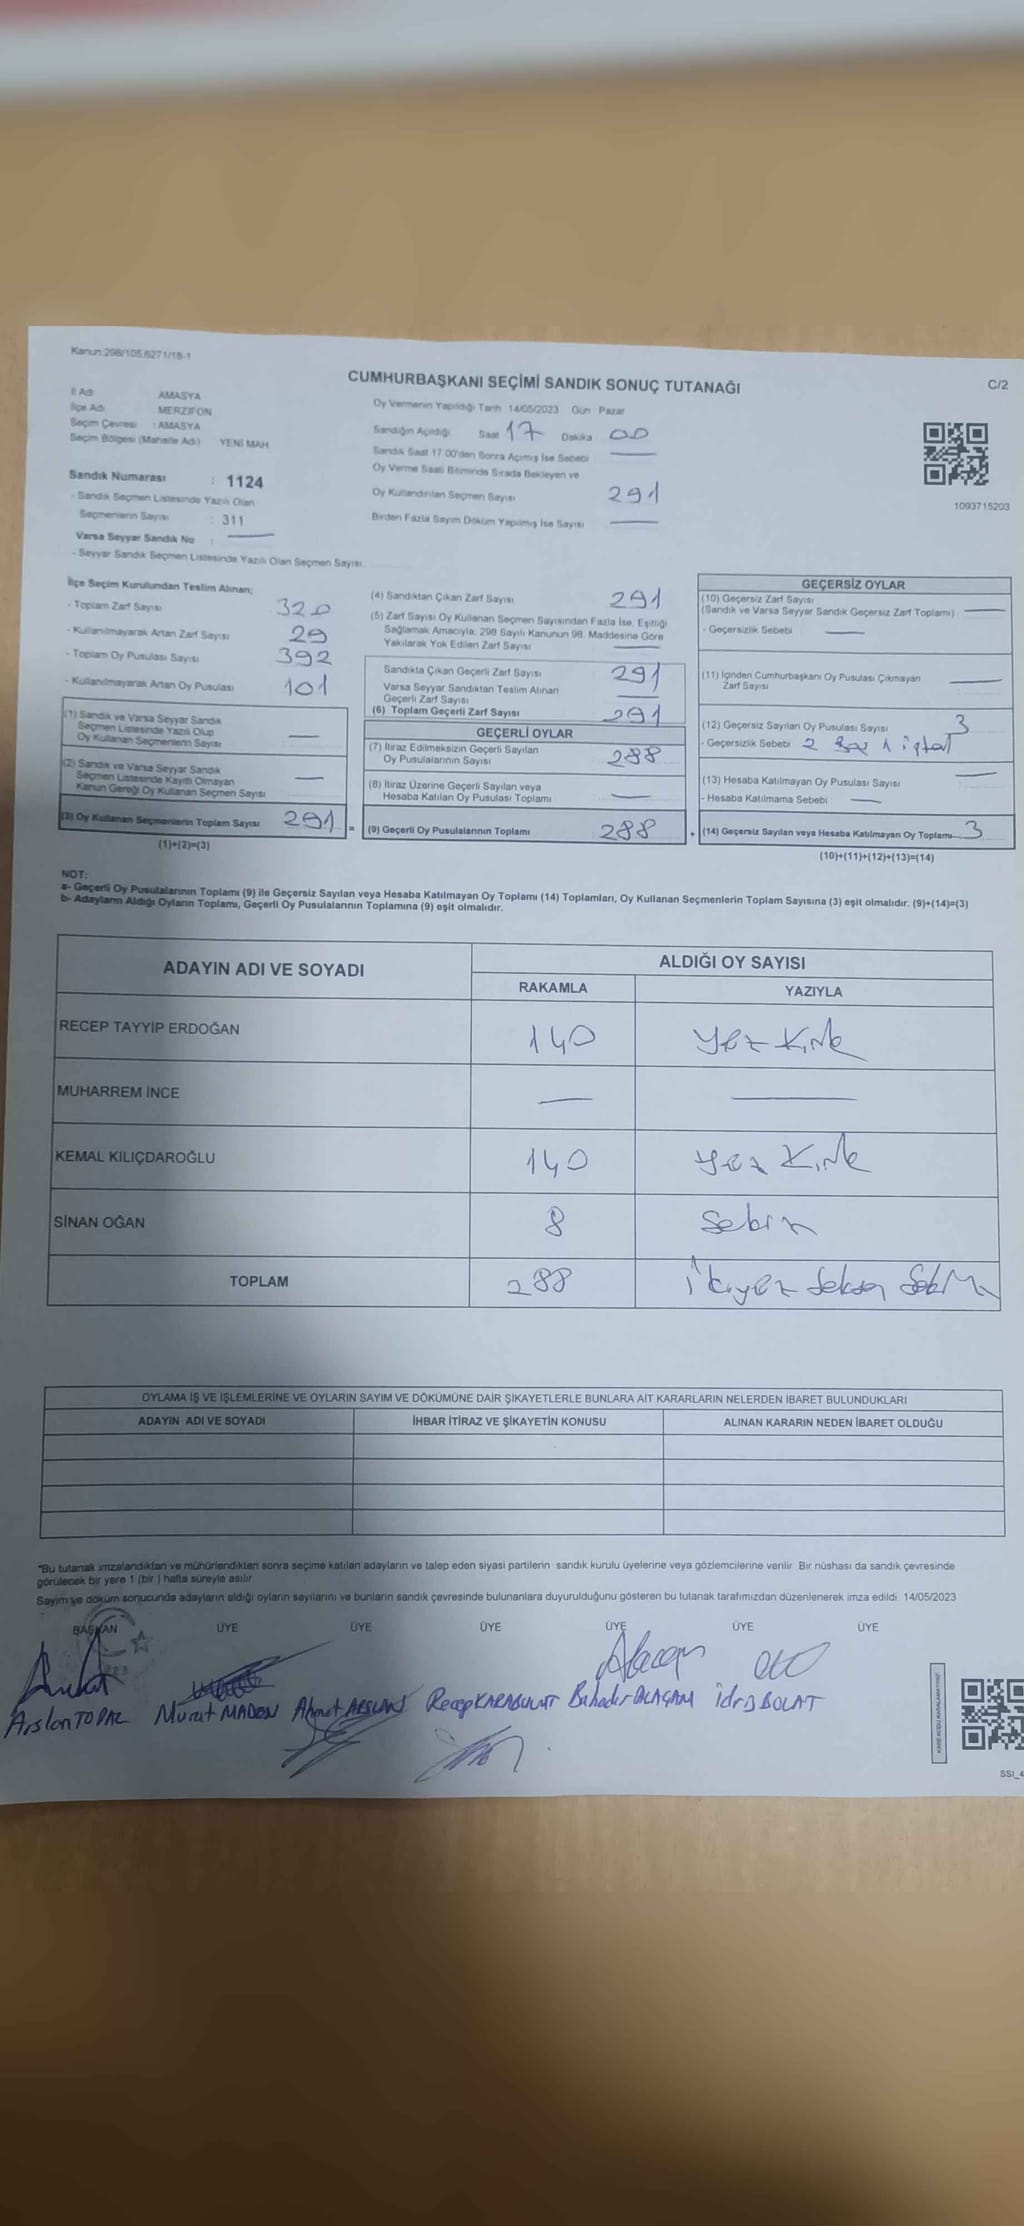 Kanun:298/105,6271/18-1
CUMHURBAŞKANI SEÇİMİ SANDIK SONUÇ TUTANAĞI
C/2
İl Adı : AMASYA
İlçe Adı : MERZİFON
Seçim Çevresi : AMASYA
Seçim Bölgesi (Mahalle Adı) YENİ MAH
Sandık Numarası : 1124
- Sandık Seçmen Listesinde Yazılı Olan
Seçmenlerin Sayısı : 311
Varsa Seyyar Sandık No :
- Seyyar Sandık Seçmen Listesinde Yazılı Olan Seçmen Sayısı
Oy Vermenin Yapıldığı Tarih 14/05/2023 Gün Pazar
Sandığın Açıldığı Saat 17 Dakika 00
Sandık Saat 17.00'den Sonra Açılmış İse Sebebi
Oy Verme Saati Bitiminde Sırada Bekleyen ve
Oy Kullandırılan Seçmen Sayısı 291
Birden Fazla Sayım Döküm Yapılmış İse Sayısı
1093715203
İlçe Seçim Kurulundan Teslim Alınan;
- Toplam Zarf Sayısı 320
- Kullanılmayarak Artan Zarf Sayısı 29
- Toplam Oy Pusulası Sayısı 392
- Kullanılmayarak Artan Oy Pusulası 101
(1) Sandık ve Varsa Seyyar Sandık
Seçmen Listesinde Yazılı Olup
Oy Kullanan Seçmenlerin Sayısı
(2) Sandık ve Varsa Seyyar Sandık
Seçmen Listesinde Kayıtlı Olmayan
Kanun Gereği Oy Kullanan Seçmen Sayısı
(3) Oy Kullanan Seçmenlerin Toplam Sayısı 291 =
(1)+(2)=(3)
(4) Sandıktan Çıkan Zarf Sayısı 291
(5) Zarf Sayısı Oy Kullanan Seçmen Sayısından Fazla İse, Eşitliği
Sağlamak Amacıyla, 298 Sayılı Kanunun 98. Maddesine Göre
Yakılarak Yok Edilen Zarf Sayısı
Sandıkta Çıkan Geçerli Zarf Sayısı 291
Varsa Seyyar Sandıktan Teslim Alınan
Geçerli Zarf Sayısı
(6) Toplam Geçerli Zarf Sayısı 291
GEÇERLİ OYLAR
(7) İtiraz Edilmeksizin Geçerli Sayılan
Oy Pusulalarının Sayısı 288
(8) İtiraz Üzerine Geçerli Sayılan veya
Hesaba Katılan Oy Pusulası Toplamı
(9) Geçerli Oy Pusulalarının Toplamı 288 +
GEÇERSİZ OYLAR
(10) Geçersiz Zarf Sayısı
(Sandık ve Varsa Seyyar Sandık Geçersiz Zarf Toplamı)
- Geçersizlik Sebebi
(11) İçinden Cumhurbaşkanı Oy Pusulası Çıkmayan
Zarf Sayısı
(12) Geçersiz Sayılan Oy Pusulası Sayısı 3
- Geçersizlik Sebebi 2 Boş 1 iptal
(13) Hesaba Katılmayan Oy Pusulası Sayısı
- Hesaba Katılmama Sebebi
(14) Geçersiz Sayılan veya Hesaba Katılmayan Oy Toplamı 3
(10)+(11)+(12)+(13)=(14)
NOT:
a- Geçerli Oy Pusulalarının Toplamı (9) ile Geçersiz Sayılan veya Hesaba Katılmayan Oy Toplamı (14) Toplamları, Oy Kullanan Seçmenlerin Toplam Sayısına (3) eşit olmalıdır. (9)+(14)=(3)
b- Adayların Aldığı Oyların Toplamı, Geçerli Oy Pusulalarının Toplamına (9) eşit olmalıdır.
ADAYIN ADI VE SOYADI
ALDIĞI OY SAYISI
RAKAMLA YAZIYLA
RECEP TAYYİP ERDOĞAN 140 Yüz Kırk
MUHARREM İNCE
KEMAL KILIÇDAROĞLU 140 Yüz Kırk
SİNAN OĞAN 8 Sekiz
TOPLAM 288 İkiyüz Seksen Sekiz
OYLAMA İŞ VE İŞLEMLERİNE VE OYLARIN SAYIM VE DÖKÜMÜNE DAİR ŞİKAYETLERLE BUNLARA AİT KARARLARIN NELERDEN İBARET BULUNDUKLARI
ADAYIN ADI VE SOYADI İHBAR İTİRAZ VE ŞİKAYETİN KONUSU ALINAN KARARIN NEDEN İBARET OLDUĞU
*Bu tutanak imzalandıktan ve mühürlendikten sonra seçime katılan adayların ve talep eden siyasi partilerin sandık kurulu üyelerine veya gözlemcilerine verilir. Bir nüshası da sandık çevresinde
görülecek bir yere 1 (bir) hafta süreyle asılır
Sayım ve döküm sonucunda adayların aldığı oyların sayılarını ve bunların sandık çevresinde bulunanlara duyurulduğunu gösteren bu tutanak tarafımızdan düzenlenerek imza edildi. 14/05/2023
BAŞKAN ÜYE ÜYE ÜYE ÜYE ÜYE ÜYE
Arslan TOPAL Murat MADEN Ahmet ARSLAN Recep KARABULUT Bahadır ALAÇAM İdris BOLAT
SSI_4